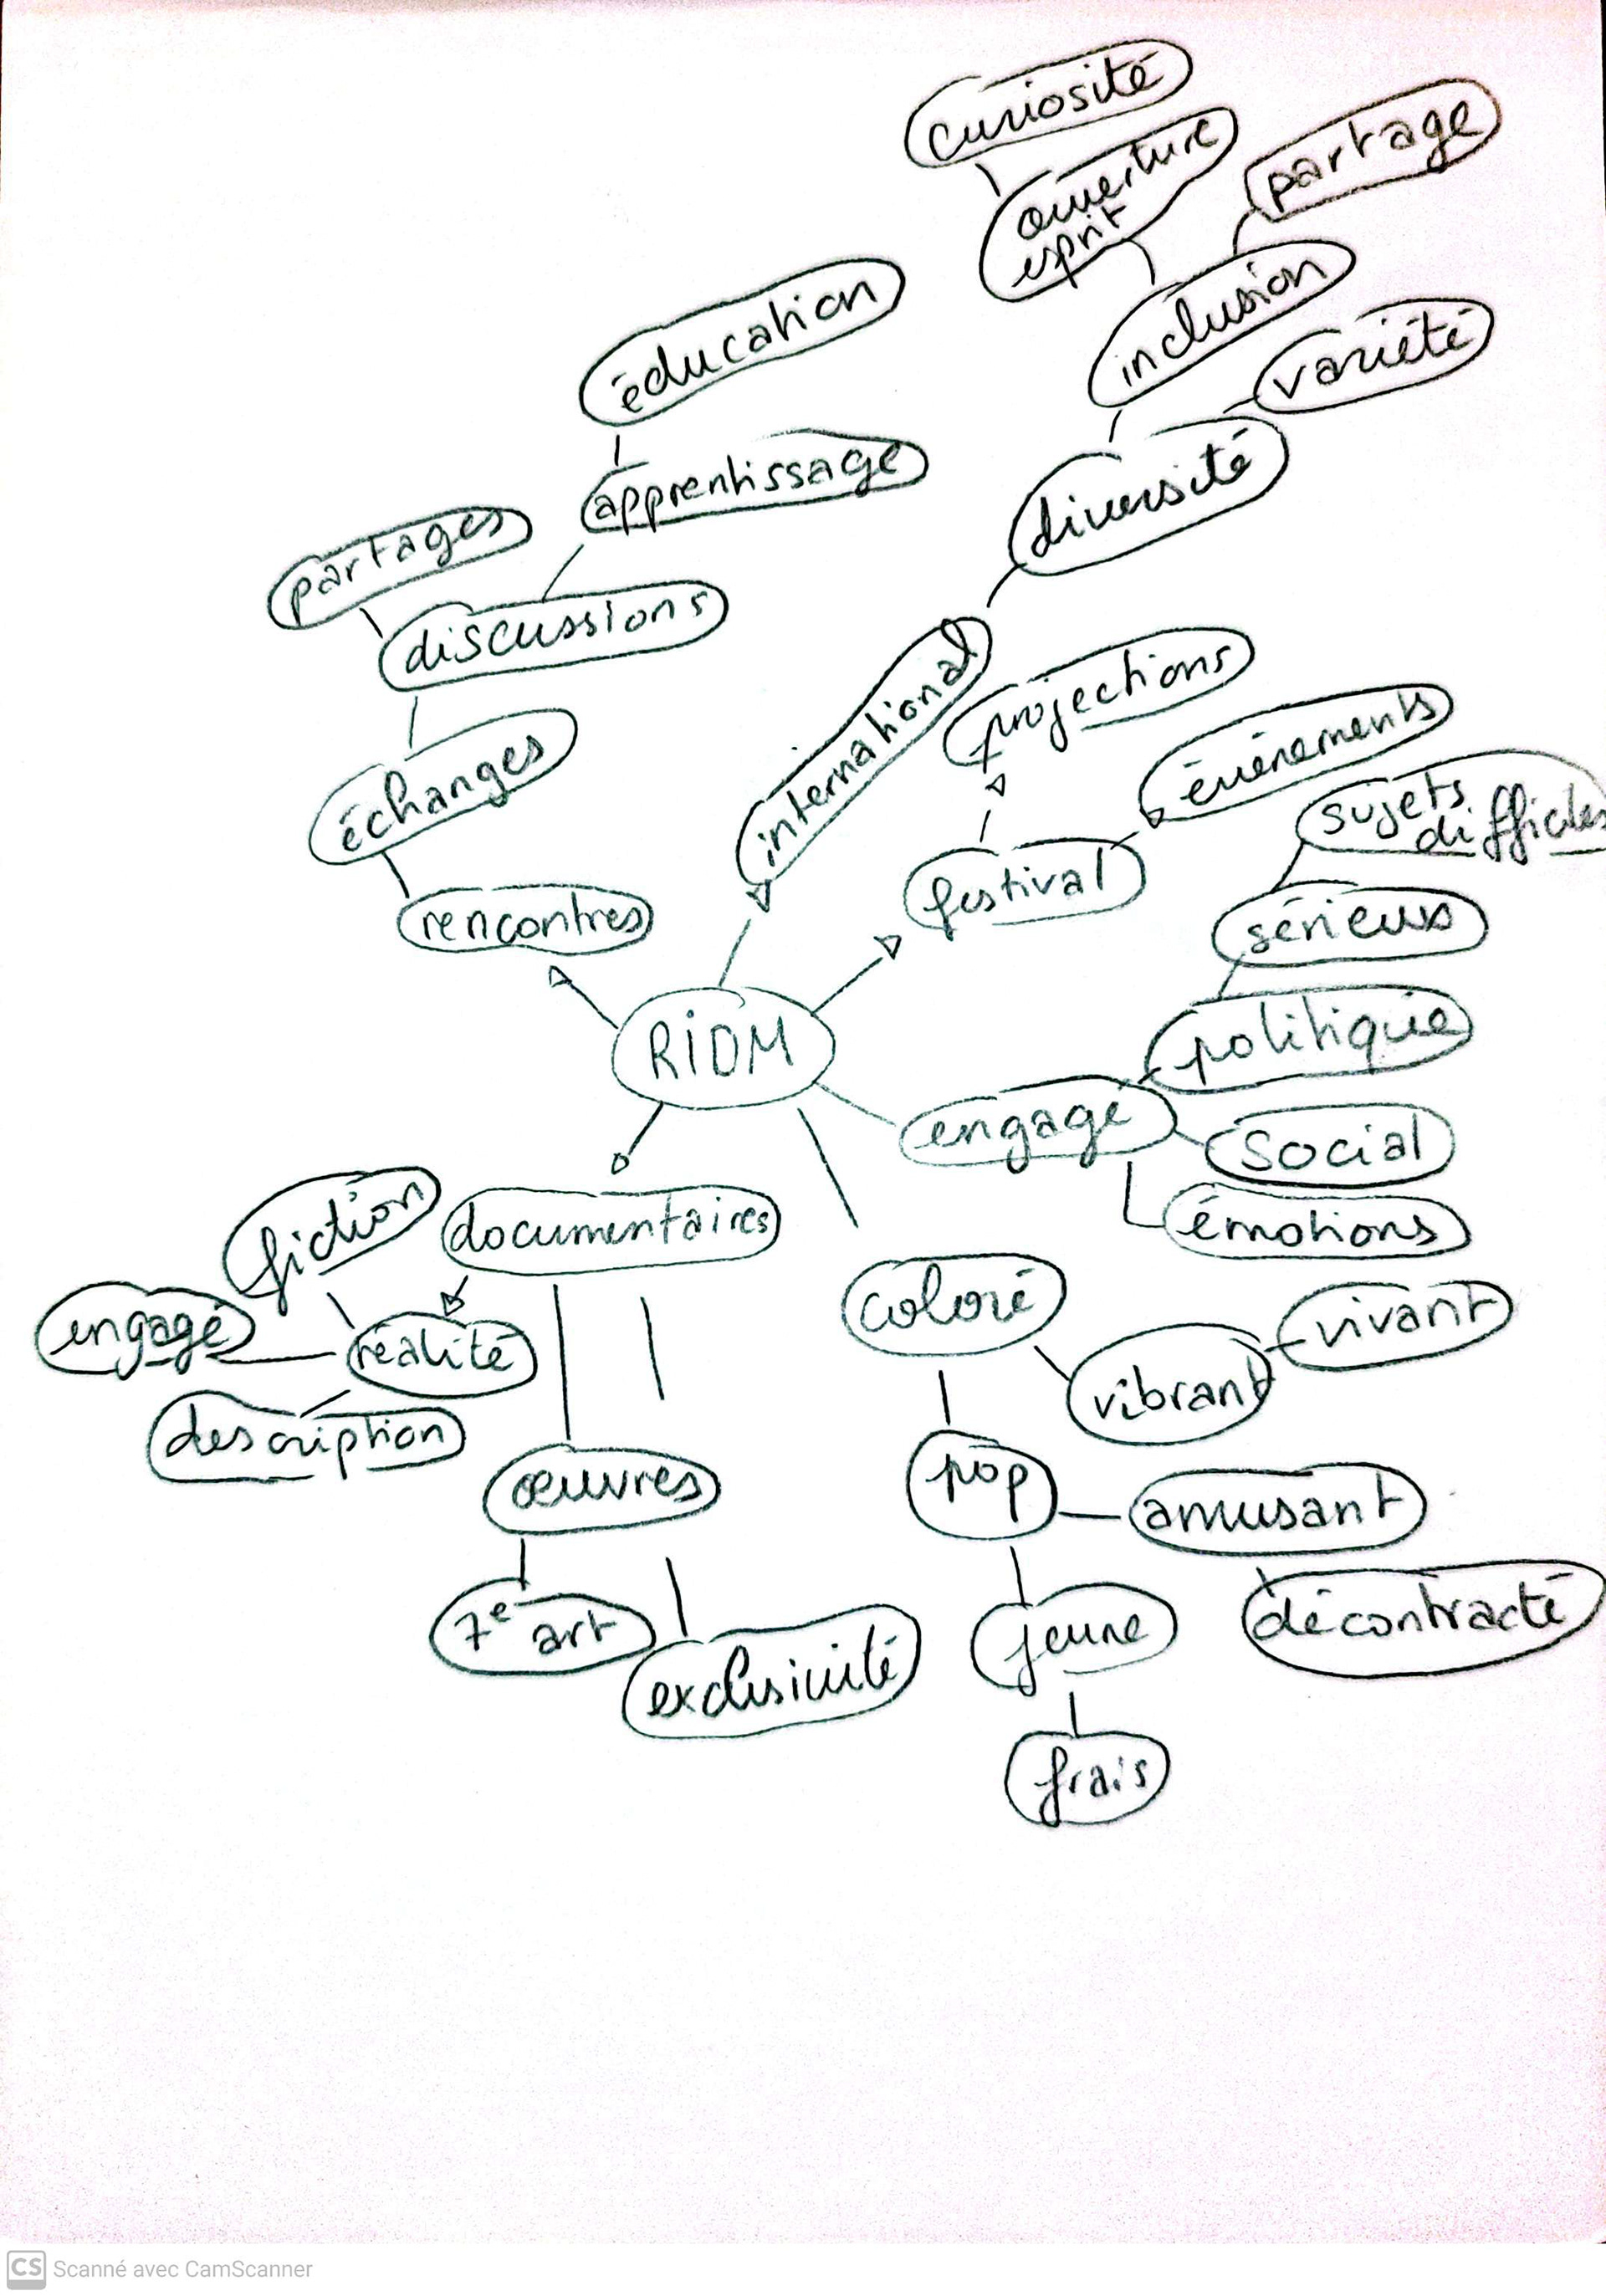 curiosité
ouverture
esprit
partage
inclusion
variété
diversité
éducation
apprentissage
partages
discussions
échanges
rencontres
international
projections
événements
festival
sujets
difficiles
sérieux
politique
RIDM
engagé
social
émotions
documentaires
fiction
engagé
réalité
description
œuvres
7e art
exclusivité
coloré
vibrant
vivant
pop
amusant
décontracté
jeune
frais
CS Scanné avec CamScanner